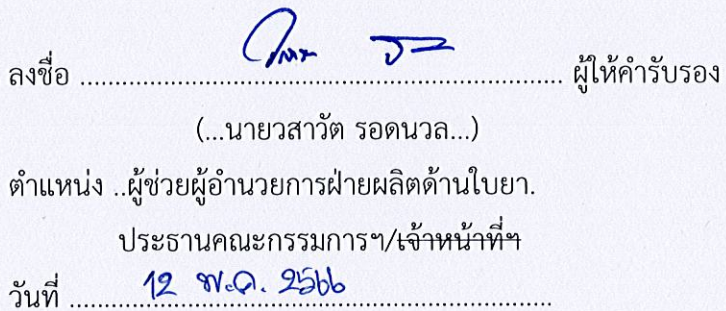 ลงชื่อ ............................................................ ผู้ให้คำรับรอง
(...นายวสาวัต รอดนวล...)
ตำแหน่ง ..ผู้ช่วยผู้อำนวยการฝ่ายผลิตด้านใบยา.
ประธานคณะกรรมการฯ/เจ้าหน้าที่ฯ
วันที่ .........12 พ.ค. 2566.........